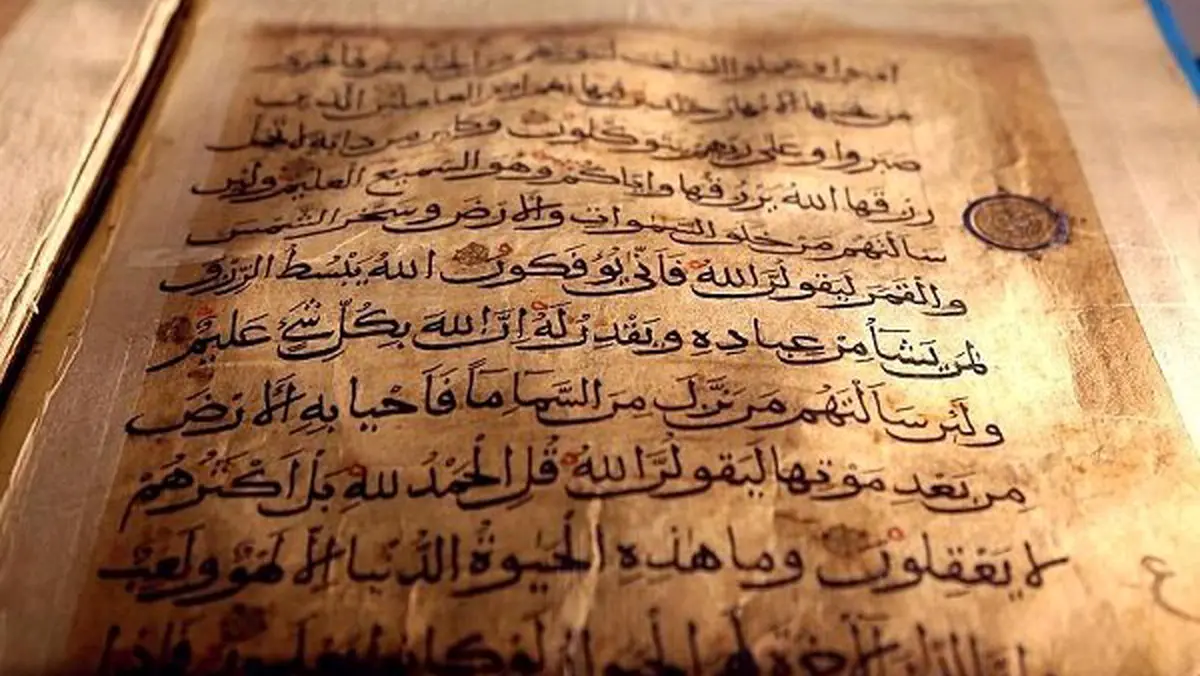 امنوا وعملوا الصلحت لنبوئنهم من الجنة غرفا تجري
من تحتها الانهار خالدين فيها نعم اجر العاملين الذين
صبروا وعلى ربهم يتوكلون وكاين من دابة لا تحمل
رزقها الله يرزقها واياكم وهو السميع العليم ولئن
سالتهم من خلق السموات والارض وسخر الشمس
والقمر ليقولن الله فَاَنّى يُوفَكونَ الله يَبْسُطُ الرّزق
لمن يَشَأ من عِبادِهِ ويَقْدِرُ لَهُ اِنَّ اللهَ بِكُلِّ شَيْءٍ عَلِيمٌ
ولَئن سَاَلْتَهُم مَن نَزَّلَ مِنَ السَّمَا مَاً فَاَحْيَا بِهِ الْاَرْضَ
مِن بَعْدِ مَوْتِها لَيَقولُنَّ اللهُ قُلِ الْحَمْدُ للهِ بَلْ اَكْثَرُهُمْ
لا يَعْقِلونَ وما هٰذِهِ الْحَيٰوةُ الدُّنْيا اِلّا لَهْوٌ ولَعِبٌ
وان الدار الآخرة لهي الحيوان لو كانوا يعلمون فاذا
ع